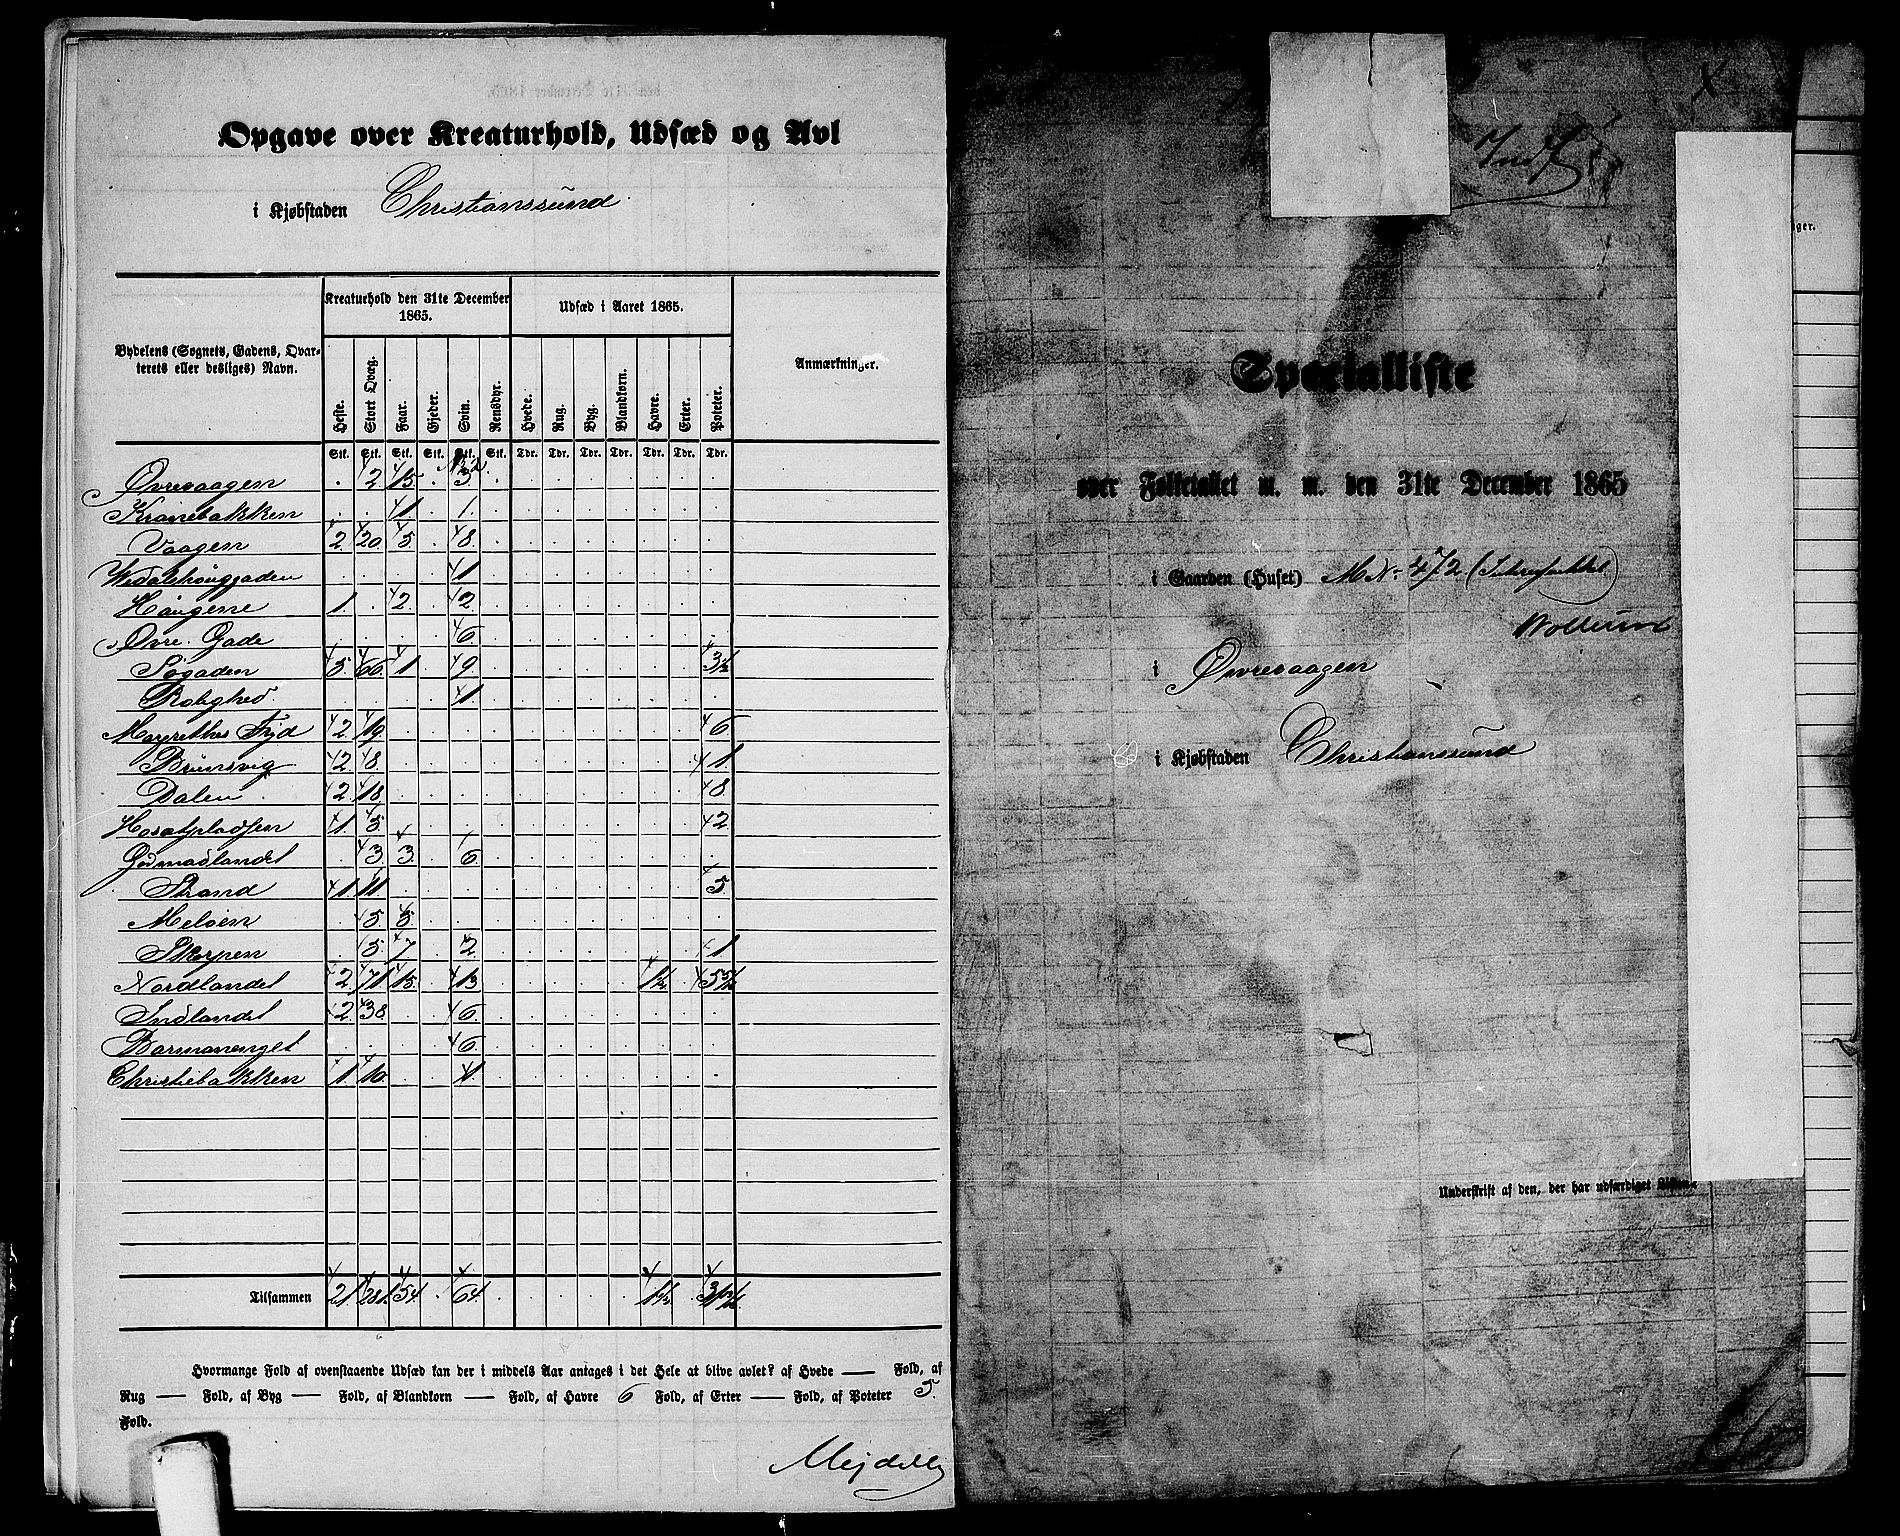 Opgave over Kreaturhold, Udsæd og Avl
i Kjøbstaden Christianssund
Bydelens (Sognets, Gadens, Qvarterets eller desliges) Navn.
Kreaturhold den 31te December 1865.
Udsæd i Aaret 1865.
Anmærkninger.
Heste. Stort Qvæg. Faar. Gjeder. Svin. Rensdyr. Hvede. Rug. Byg. Blandkorn. Havre. Erter. Poteter.
Stk. Stk. Stk. Stk. Stk. Stk. Tdr. Tdr. Tdr. Tdr. Tdr. Tdr. Tdr.
Øvrevaagen . 2 15 . 3 . . . . . . . .
Kranebakken . . 1 . 1 . . . . . . . .
Vaagen 2 20 5 . 8 . . . . . . . .
. . . . 1 . . . . . . . .
Haugene 1 . 2 . 2 . . . . . . . .
Øvre Gade . . . . 6 . . . . . . . .
Søgaden 5 66 1 . 9 . . . . . . . 3½
Rolighed . . . . 1 . . . . . . . .
2 19 . . . . . . . . . . 6
Brunsvig 2 8 . . . . . . . . . . 1
Dalen 2 18 . . . . . . . . . . 8
1 5 . . . . . . . . . . 2
Gomalandet . 3 3 . 6 . . . . . . . .
Strand 1 11 . . . . . . . . . . 5
Meløen . 5 5 . . . . . . . . . .
Skorpen . 5 7 . 2 . . . . . . . 1
Nordlandet 2 71 15 . 13 . . . . .
Indlandet 2 38 . . 6 . . . . . . . .
. . . . 6 . . . . . . . .
Christiebakken 1 10 . . 1 . . . . . . . .
Tilsammen 21 281 54 . 64 . . . . .
Hvormange Fold af ovenstaaende Udsæd kan der i middels Aar antages i det Hele at blive avlet? af Hvede — Fold, af
Rug — Fold, af Byg — Fold, af Blandkorn — Fold, af Havre 6 Fold, af Erter — Fold, af Poteter 5
Fold.
Mejdell
Specialliste
over Folketallet m. m. den 31te December 1865
i Gaarden (Huset) M No. 472
i Øvrevaagen
i Kjøbstaden Christianssund
Underskrift af den, der har udfærdiget Listen.